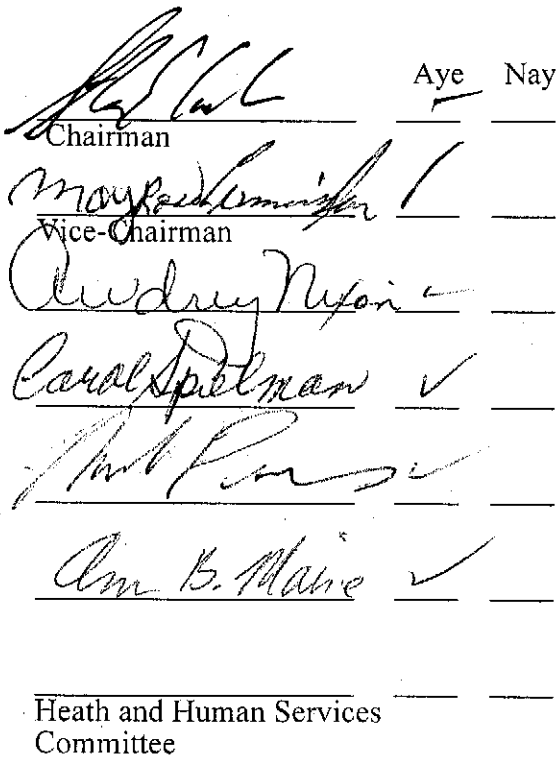 Aye Nay
Chairman
Vice-Chairman
Audrey Nixon
Carol Spielman
Ann B. Maine
Heath and Human Services
Committee